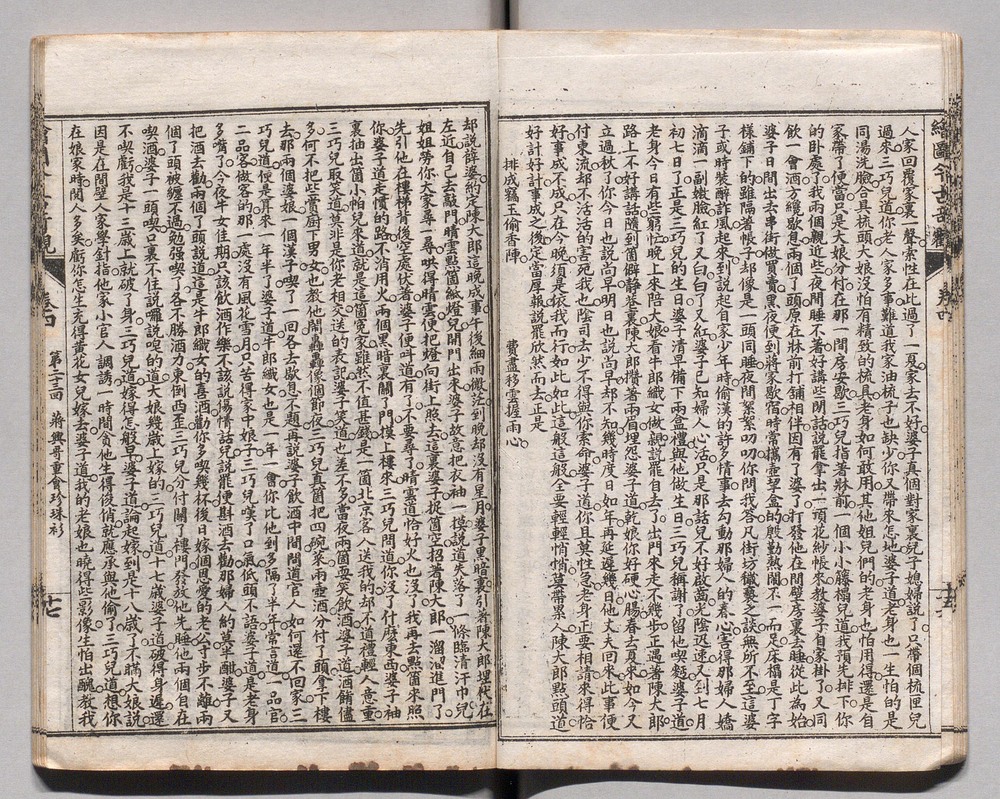 人家回覆家裏一聲索性在此過了一夏家去不好婆子真個對家裏兒子媳婦說了只帶個梳匣兒
過來三巧兒道你老人家多事難道我家油梳子也缺少你又帶來怎地婆子道老身也一生怕的是
同湯洗臉合具梳頭大娘沒怕有精致的梳具老身如何敢用其他姐兒們的老身也怕用得還是自
家帶了便當只是大娘分付在那一間房安歇三巧兒指著牀前一個小小藤榻兒道我預先排下你
的臥處了我兩個親近些夜間睡不著好講些閒話說罷拿出一頂花紗帳來教婆子自家掛了又同
飲一會酒方纔歇息兩個了頭原在牀前打鋪相伴因有了婆了打發他在間壁房裏去睡從此為始
婆子日間出去串街做買賣黑夜便到蔣家歇宿時常攜壺挈盒的殷勤熱鬧不一而足床榻是丁字
樣鋪下的雖隔著帳子却像是一頭同睡夜間絮絮叨叨你問我答凡街坊穢褻之談無所不至這婆
子或時裝醉詐風起來到說起自家少年時偷漢的許多情事去勾動那婦人的春心害得那婦人嬌
滴滴一副嫩臉紅了又白白了又紅婆子已知婦人心活只是那話兒不好啟齒光陰迅速又到七月
初七日了正是三巧兒的生日婆子清早備下兩盒禮與他做生日三巧兒稱謝了留他喫麵婆子道
老身今日有些窮忙晚上來陪大娘看牛郎織女做親說罷自去了出門來走不幾步正遇著陳大郎
路上不好講話隨到箇僻靜巷裏陳大郎攢著兩眉埋怨婆子道乾娘你好硬心腸春去夏來如今又
立過秋了你今日也說尚早明日也說尚早却不知幾時度日如年再延遲幾日他丈夫回來此事便
付東流却不活活的害死我也陰司去少不得與你索命婆子道你且莫性急老身正要相請來得恰
好事成不成只在今晚須是依我而行如此如此這般這般全要輕輕悄悄莫帶累人陳大郎點頭道
好計好計事成之後定當厚報說罷欣然而去正是
排成竊玉偷香陣 費盡移雲握雨心
却說薛婆約定陳大郎這晚成事午後細雨微茫到晚却沒有星月婆子黑暗裏引著陳大郎埋伏在
左近自己去敲門晴雲點箇紙燈兒開門出來婆子故意把衣袖一摸說道失落了一條臨清汗巾兒
姐姐勞你大家尋一尋哄得晴雲便把燈向街上照去這裏婆子捉箇空招著陳大郎一溜溜進門了
先引他在樓梯背後空處伏著婆子便叫道有了不要尋了晴雲道恰好火也沒了我再去點箇來照
你婆子道走慣的路不消用火兩個黑暗裏關了門摸上樓來三巧兒問道你沒了什麼東西婆子袖
裏抽出箇小帕兒來道就是這箇冤家雖然不值甚錢是一箇北京客人送我的却不道禮輕人意重
三巧兒取笑道莫非是你老相交送的表記婆子笑道也差不多當夜兩箇耍笑飲酒婆子道酒餚儘
多何不把些賞廚下男女也教他鬧轟轟像個節夜三巧兒真箇把四碗菜兩壺酒分付了頭拿下樓
去那兩個婆娘一個漢子喫了一回各去歇息不題再說婆子飲酒中間問道官人如何還不回家三
巧兒道便是算來一年半了婆子道牛郎織女也是一年一會你比他到多隔了半年常言道一品官
二品客做客的那一處沒有風花雪月只苦得家中娘子三巧兒嘆了口氣低頭不語婆子道是老身
多嘴了今夜牛女佳期只該飲酒作樂不該說傷情話兒說罷便斟酒去勸那婦人約莫半酣婆子又
把酒去勸兩個了頭說道這是牛郎織女的喜酒勸你多喫幾杯後日嫁個恩愛的老公寸步不離兩
個了頭被纏不過勉强喫了各不勝酒力東倒西歪三巧兒分付關了樓門發放他先睡他兩個自在
喫酒婆子一頭喫口裏不住說囉說唣的道大娘幾歲上嫁的三巧兒道十七歲婆子道破得身遲還
不喫虧我是十三歲上就破了身三巧兒道嫁得怎般早婆子道論起嫁到是十八歲了不瞞大娘說
因是在間壁人家學針指他家小官人調誘一時間貪他生得俊俏就應承與他偷了三巧兒道想你
在娘家時閱人多矣虧你怎生充得黃花女兒嫁去婆子道我的老娘也曉得些影像生怕出醜教我
卷四 第二十三回 蔣興哥重會珍珠衫 七